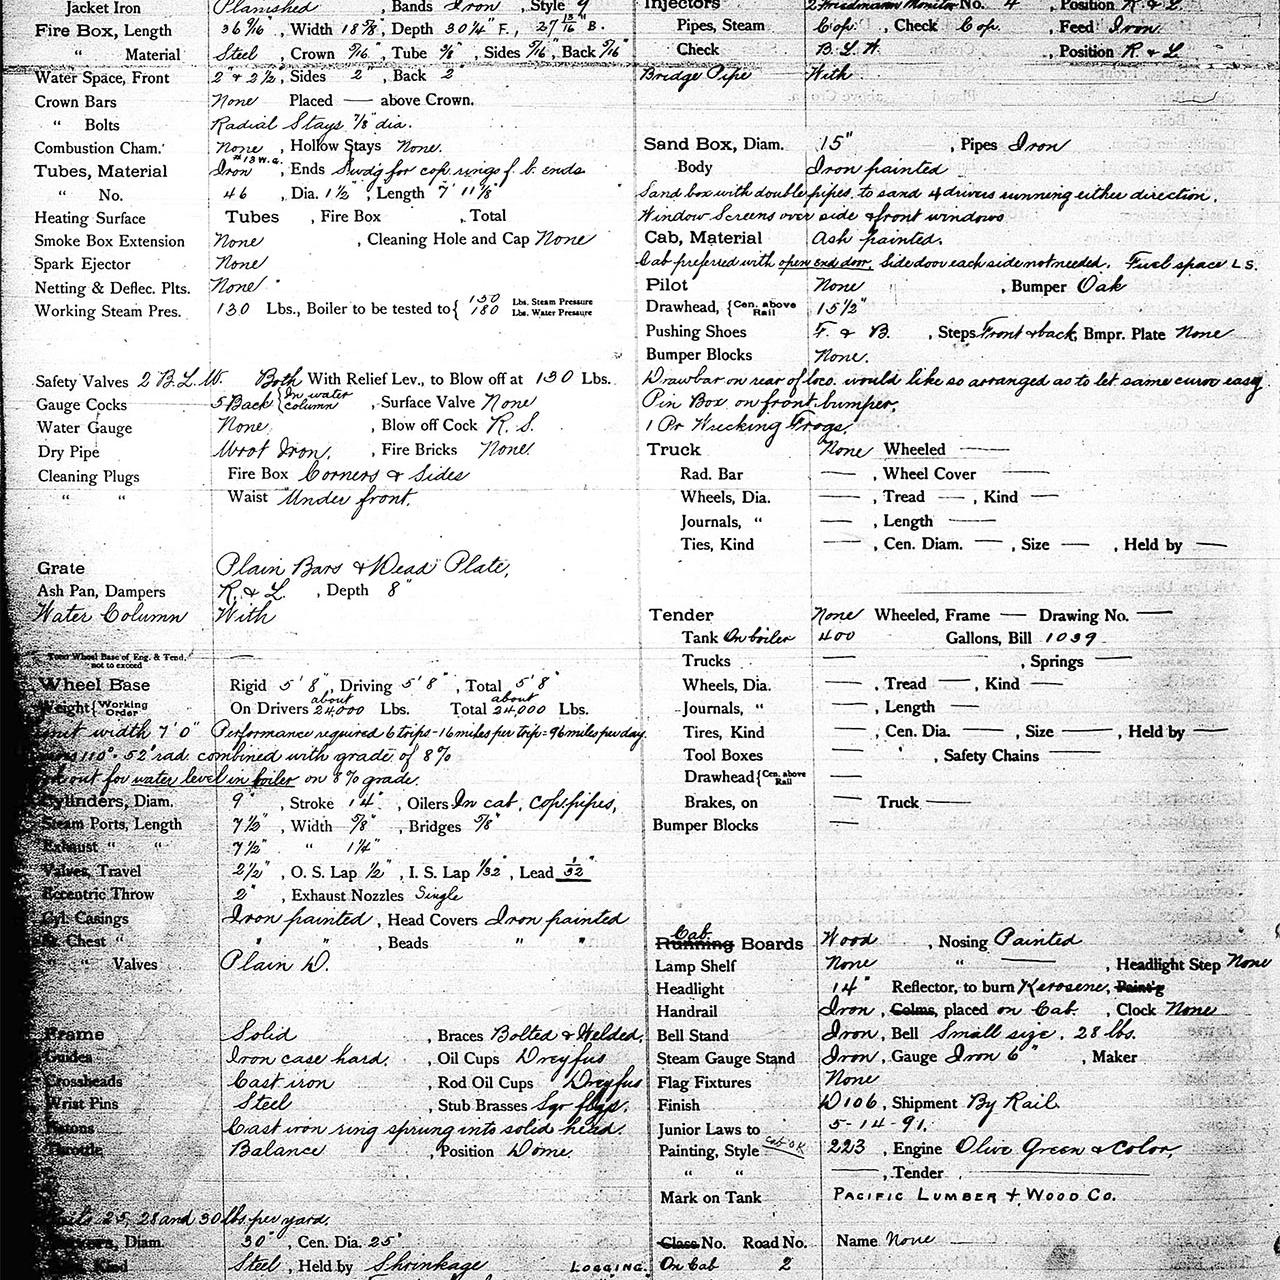 Jacket Iron Planished, Bands Iron, Style 9
Fire Box, Length 36 9/16", Width 18 7/8", Depth 30 1/4" F., 27 13/16" B.
" Material Steel, Crown 5/16", Tube 3/8", Sides 5/16", Back 5/16"
Water Space, Front 2" & 2 1/2, Sides 2", Back 2
Crown Bars None Placed — above Crown.
" Bolts Radial Stays 7/8" dia.
Combustion Cham. None, Hollow Stays None.
Tubes, Material Iron #13 W.G., Ends Swdg for cop. rings f. b. ends
" No. 46, Dia. 1 1/2", Length 7' 11 1/8"
Heating Surface Tubes , Fire Box , Total
Smoke Box Extension None , Cleaning Hole and Cap None
Spark Ejector None
Netting & Deflec. Plts. None
Working Steam Pres. 130 Lbs., Boiler to be tested to { 150 Lbs. Steam Pressure
180 Lbs. Water Pressure
Safety Valves 2 B.L.W. Both With Relief Lev., to Blow off at 130 Lbs.
Gauge Cocks 5 Back { In water column , Surface Valve None
Water Gauge None , Blow off Cock R. S.
Dry Pipe Wrot Iron. , Fire Bricks None.
Cleaning Plugs Fire Box Corners & Sides
" " Waist Under front.
Grate Plain Bars & Dead Plate.
Ash Pan, Dampers R. & L. , Depth 8"
Water Column With
Total Wheel Base of Eng. & Tend. not to exceed —
Wheel Base Rigid 5' 8", Driving 5' 8", Total 5' 8"
Weight { Working Order On Drivers about 24,000 Lbs. Total about 24,000 Lbs.
width 7' 0" Performance required 6 trips - 16 miles per trip = 96 miles per day.
110° - 52' rad. combined with grade of 8%
out for water level in boiler on 8% grade.
Cylinders, Diam. 9", Stroke 14", Oilers In cab, cop. pipes,
Steam Ports, Length 7 1/2", Width 5/8", Bridges 5/8"
Exhaust " " 7 1/2" " 1 1/4"
Valves, Travel 2 1/2", O. S. Lap 1/2", I. S. Lap 1/32", Lead 1/32"
Eccentric Throw 2", Exhaust Nozzles Single
Cyl. Casings Iron painted, Head Covers Iron painted
St. Chest " " " , Beads " "
" " Valves Plain D.
Frame Solid , Braces Bolted & Welded.
Guides Iron case hard. , Oil Cups Dreyfus
Crossheads Cast iron , Rod Oil Cups Dreyfus
Wrist Pins Steel , Stub Brasses Sqr flgs.
Pistons Cast iron ring sprung into solid head.
Throttle Balance , Position Dome.
Rails 25, 28 and 30 lbs per yard.
Diam. 30", Cen. Dia. 25"
Kind Steel, Held by Shrinkage
LOGGING.
Injectors 2 Friedmann Monitor No. 4 , Position R. & L.
Pipes, Steam Cop., Check Cop. , Feed Iron.
Check B. L. W. , Position R & L
Bridge Pipe With
Sand Box, Diam. 15" , Pipes Iron
Body Iron painted
Sand box with double pipes, to sand 4 drivers running either direction.
Window Screens over side & front windows
Cab, Material Ash painted.
Cab preferred with open end door. Side door each side not needed. Fuel space L S.
Pilot None , Bumper Oak
Drawhead, { Cen. above Rail 15 1/2"
Pushing Shoes F. & B. , Steps Front & back, Bmpr. Plate None
Bumper Blocks None.
Drawbar on rear of loco. would like so arranged as to let same curve easy
Pin Box on front bumper.
1 Pr Wrecking Frogs.
Truck None Wheeled —
Rad. Bar — , Wheel Cover —
Wheels, Dia. — , Tread — , Kind —
Journals, " — , Length —
Ties, Kind — , Cen. Diam. — , Size — , Held by —
Tender None Wheeled, Frame — Drawing No. —
Tank On boiler 400 Gallons, Bill 1039
Trucks , Springs —
Wheels, Dia. — , Tread — , Kind —
Journals, " — , Length —
Tires, Kind — , Cen. Dia. — , Size — , Held by —
Tool Boxes , Safety Chains —
Drawhead { Cen. above Rail —
Brakes, on — Truck —
Bumper Blocks —
Cab
Running Boards Wood , Nosing Painted
Lamp Shelf None " — , Headlight Step None
Headlight 14" Reflector, to burn Kerosene, Paint'g
Handrail Iron, Colms, placed on Cab. , Clock None
Bell Stand Iron, Bell Small size. 28 lbs.
Steam Gauge Stand Iron, Gauge Iron 6" , Maker
Flag Fixtures None
Finish D106, Shipment By Rail
Junior Laws to 5-14-91.
Painting, Style Cab OK 223, Engine Olive Green & Color,
" " —, Tender —
Mark on Tank PACIFIC LUMBER & WOOD CO.
Class No. Road No. Name None —
On Cab 2